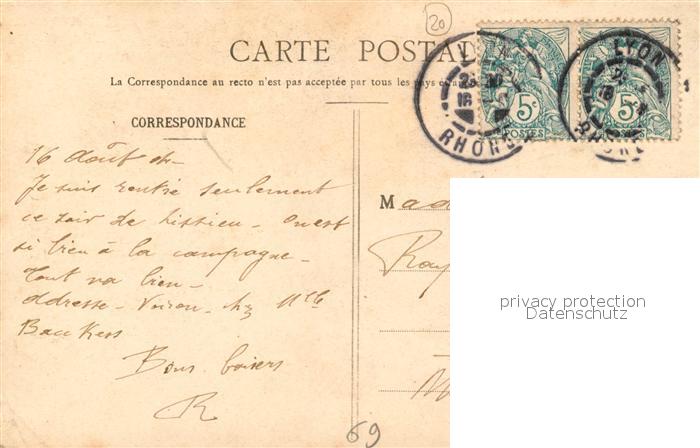 20
CARTE POSTAL
La Correspondance au recto n'est pas acceptée par tous les pays
CORRESPONDANCE
LYON
RHONE
5c
POSTES
LYON
RHONE
5c
POSTES
1
16 août
Je suis rentré seulement
ce soir de - on est
si bien à la campagne -
tout va bien -
adresse - Voiron - Mlle
Bons baisers
R
Mad
Ray
M
privacy protection
Datenschutz
69